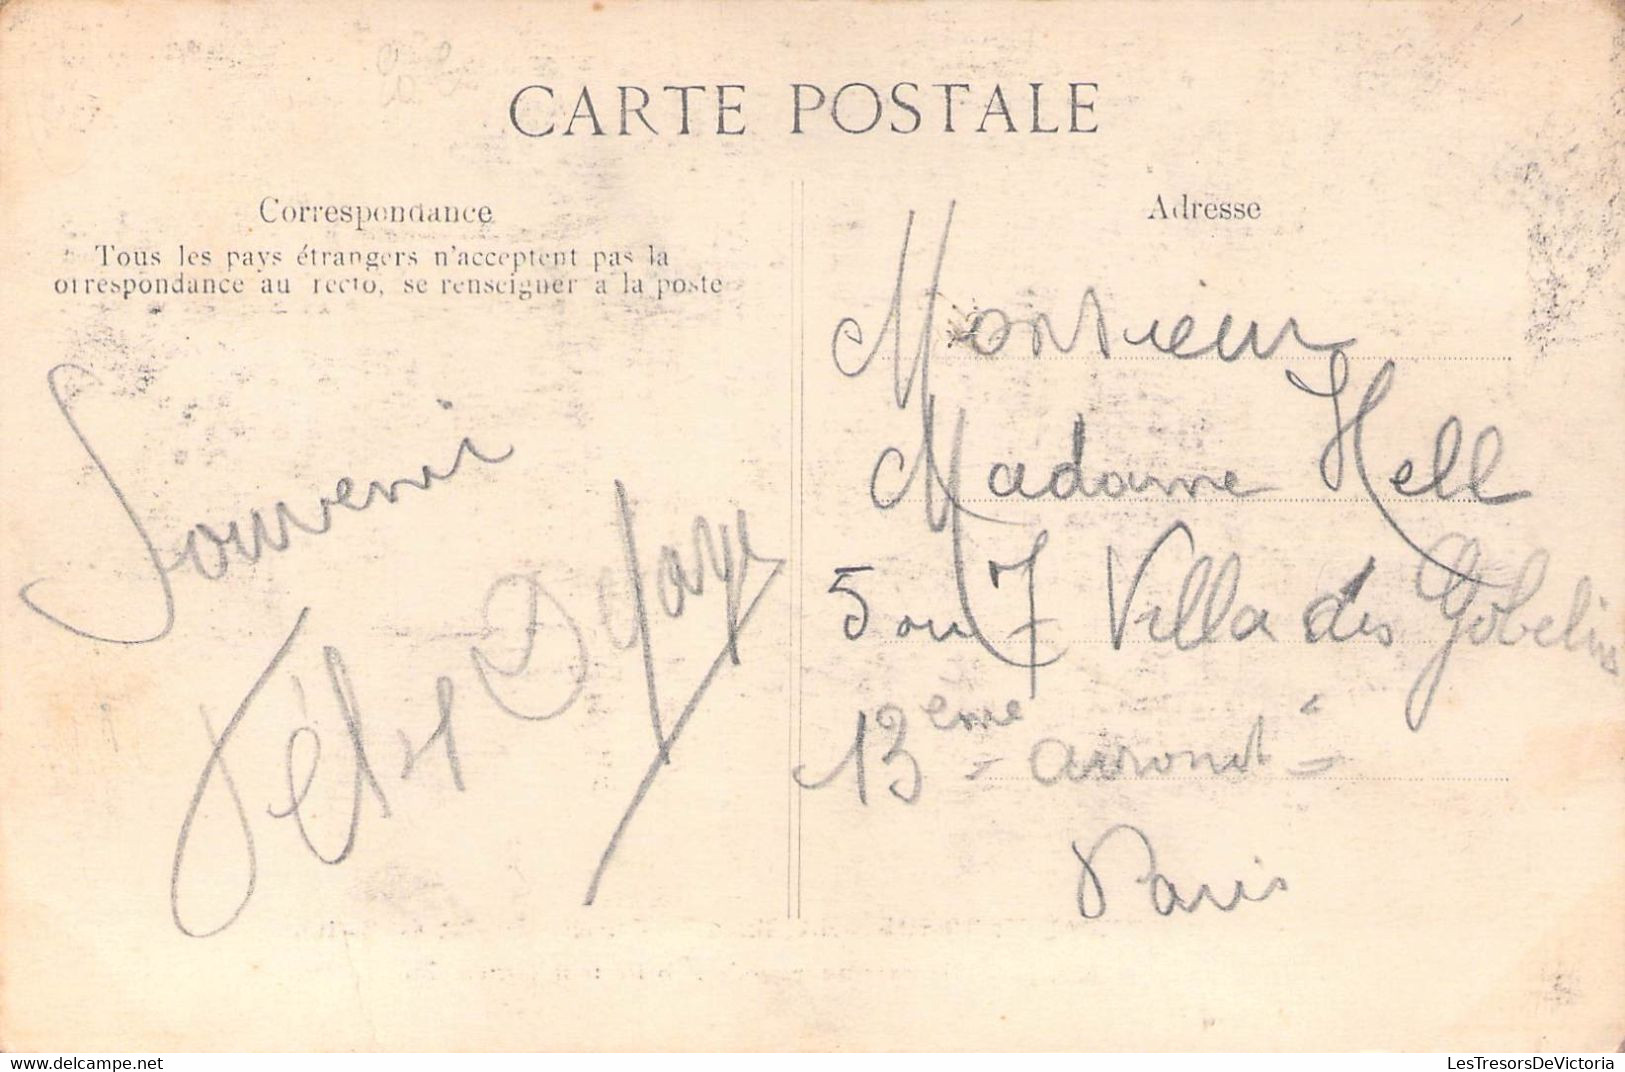 CARTE POSTALE
Correspondance
Tous les pays étrangers n'acceptent pas la
orrespondance au recto, se renseigner a la poste
Souvenir
Félix
Adresse
Monsieur
Madame Hell
5 ou 7 Villa des Gobelins
13ème arrondt
Paris
LesTresorsDeVictoria